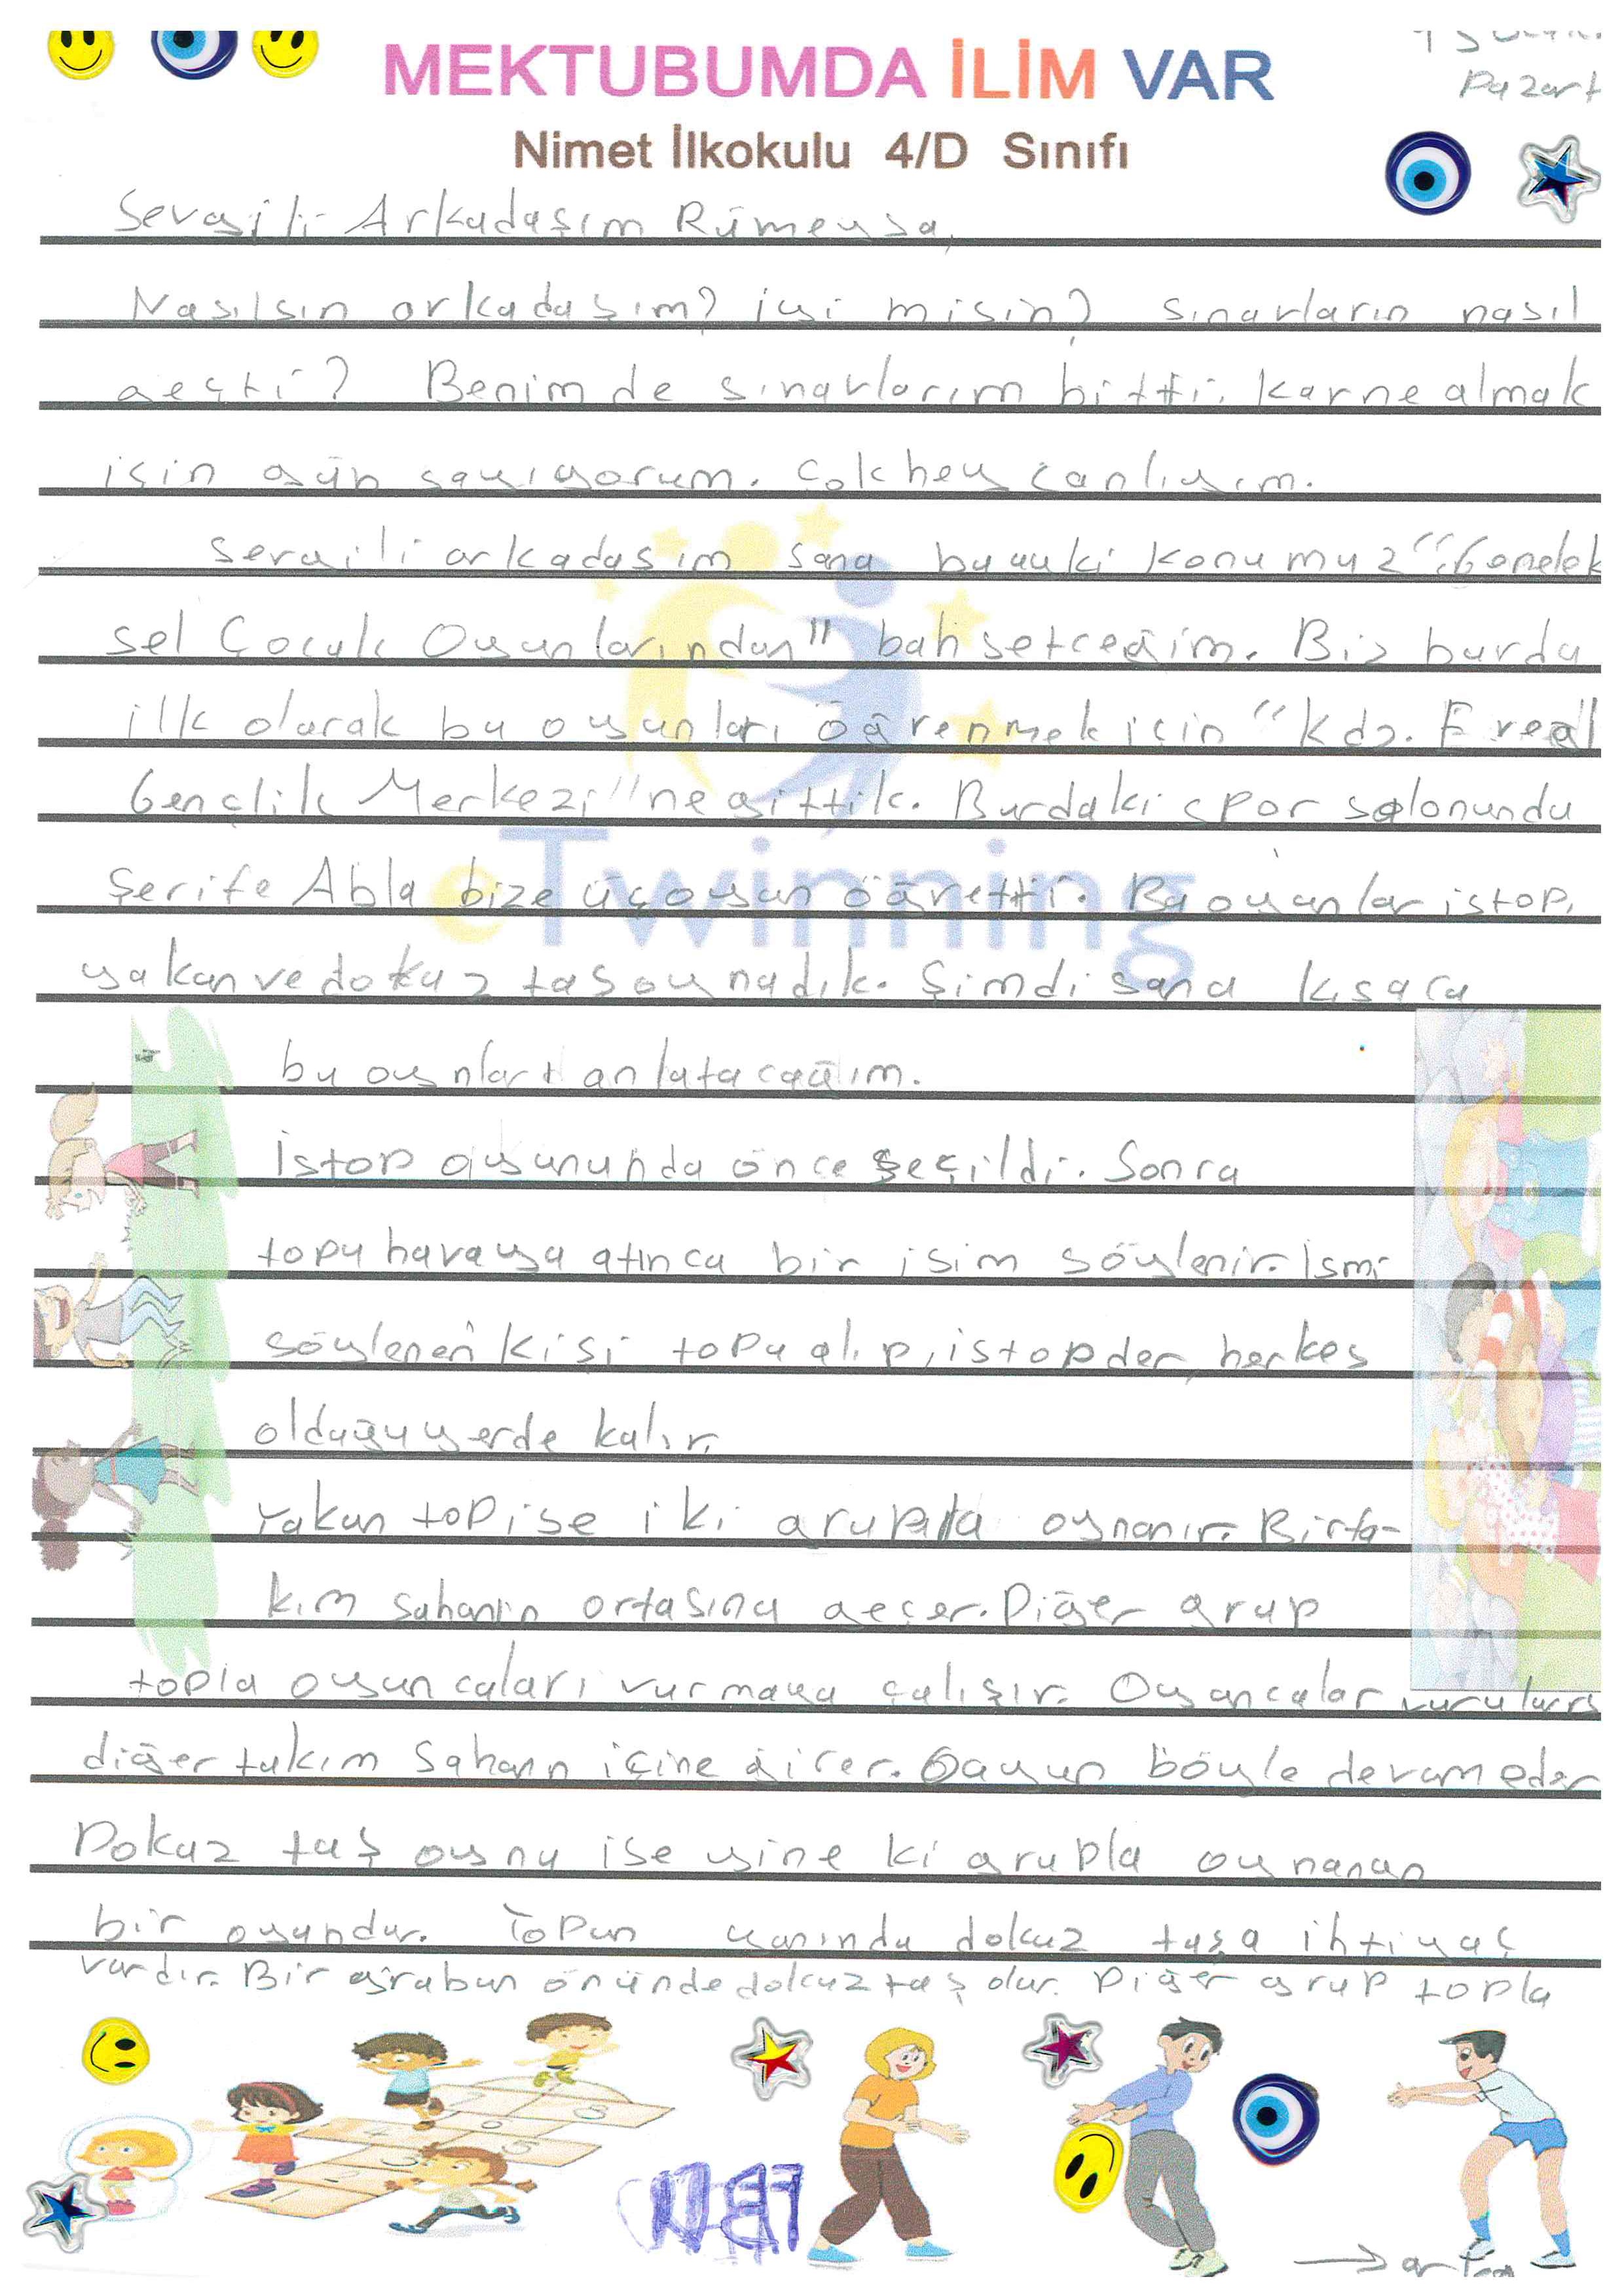 MEKTUBUMDA İLİM VAR
Nimet İlkokulu 4/D Sınıfı
Sevgili Arkadaşım Rümeysa,
Nasılsın arkadaşım? iyi misin? sınavların nasıl
geçti? Benim de sınavlarım bitti. Karne almak
için gün sayıyorum. Çok heycanlıyım.
Sevgili arkadaşım sana bu ayki konumuz "Genelek
sel Çocuk Oyunlarından" bahsetceğim. Biz burda
ilk olarak bu oyunları öğrenmek için "Kdz. Ereğl
Gençlik Merkezi"ne gittik. Burdaki spor salonunda
Şerife Abla bize üç oyun öğretti. Bu oyunlar istop,
yakan ve dokuz taş oynadık. Şimdi sana kısaca
bu oynları anlatacağım.
İstop oyununda önce seçildi. Sonra
topu havaya atınca bir isim söylenir. İsmi
söylenen kişi topu alıp, istop der, herkes
olduğu yerde kalır.
Yakan top ise iki grupla oynanır. Bir ta-
kım sahanın ortasına geçer. Diğer grup
topla oyuncuları vurmaya çalışır. Oyuncular
diğer takım sahanın içine girer. böyle devam eder
Dokuz taş oynu ise yine ki grupla oynanan
bir oyundur. Topun yanında dokuz taşa ihtiyaç
vardır. Bir grubun önünde dokuz taş olur. Diğer grup topla
eTwinning